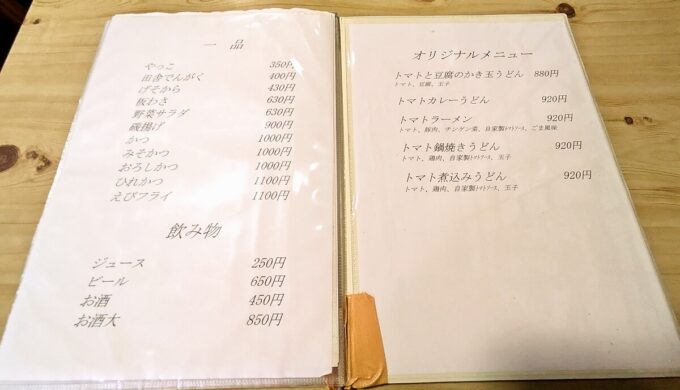 一 品
やっこ 350円
田舎でんがく 400円
げそから 430円
板わさ 630円
野菜サラダ 630円
磯揚げ 900円
かつ 1000円
みそかつ 1000円
おろしかつ 1000円
ひれかつ 1100円
えびフライ 1100円
飲み物
ジュース 250円
ビール 650円
お酒 450円
お酒大 850円
オリジナルメニュー
トマトと豆腐のかき玉うどん 880円
トマト、豆腐、玉子
トマトカレーうどん 920円
トマトラーメン 920円
トマト、豚肉、チンゲン菜、自家製トマトソース、ごま風味
トマト鍋焼きうどん 920円
トマト、鶏肉、自家製トマトソース、玉子
トマト煮込みうどん 920円
トマト、鶏肉、自家製トマトソース、玉子